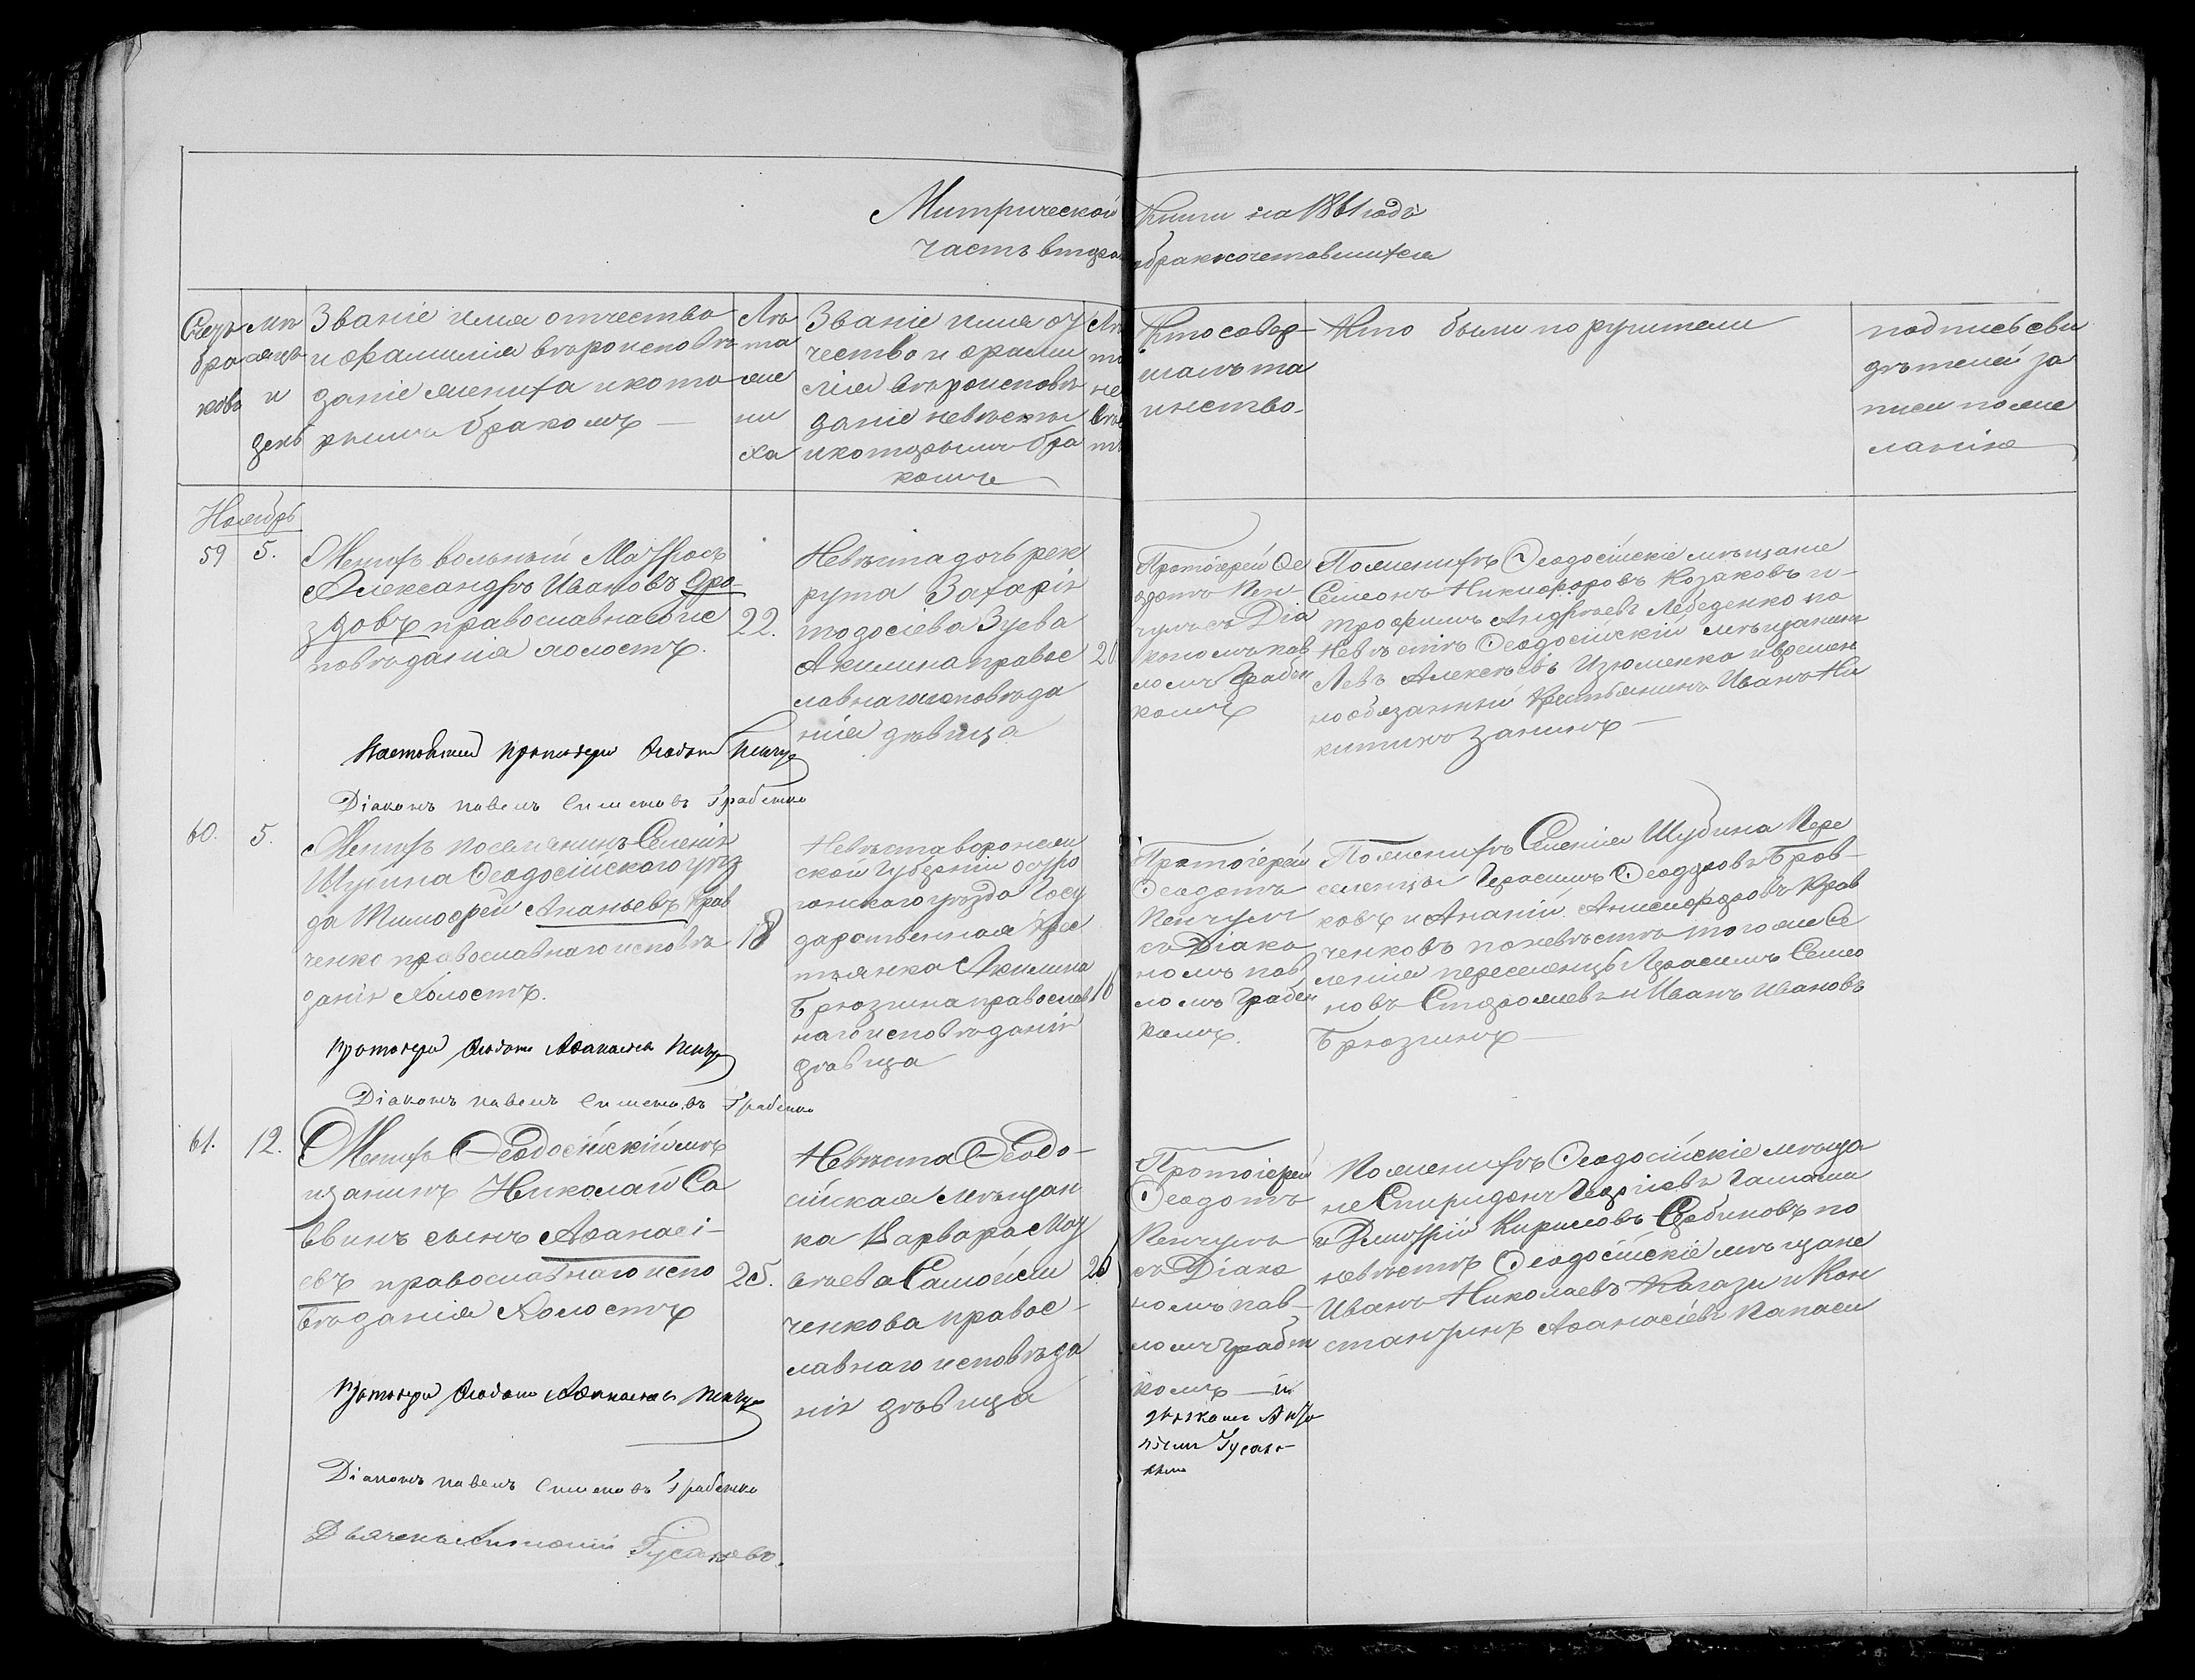 Митрической Книги на 1861 годъ
Часть вторая о бракосочетавшихся
Счетъ
бра
ковъ
мѣ
сяцъ
и
день
Званіе имя отчество
и фамилія вѣроисповѣ
даніе жениха и кото
рымъ бракомъ
Лѣ
та
же
ни
ха
Званіе имя от
чество и фами
лія вѣроисповѣ
даніе невѣсты
и которымъ бра
комъ
Лѣ
та
не
вѣс
ты
Кто совер
шалъ та
инство
Кто были поручители
подпись сви
дѣтелей за
писи по же
ланію
Ноябрь
59
5.
Женихъ вольный Матросъ
Александръ Ивановъ Дро-
здовъ православнаго ис
повѣданія холостъ.
22.
Невѣста дочь рек
рута Захарія
тодосіева Зуева
Акилина правос
лавнаго исповѣда
нія дѣвица
20
Протоіерей Ѳе
одотъ Пен-
чулъ съ Діа
кономъ пав
ломъ Грабен
комъ
По женихѣ Ѳеодосійскіе мѣщане
Семіонъ Никифоровъ Козаковъ и-
трофимъ Андреевъ Лебеденко по
Невѣстѣ Ѳеодосійскій мѣщанинъ
Левъ Алексѣевъ Изюменко и времен
нообязанный Крестьянинъ Иванъ Ни
китинъ Занинъ
Протоіерей Ѳеодотъ Пенчулъ
Діаконъ павелъ Симеоновъ Грабенко
60.
5.
Женихъ поселянинъ Селенія
Шубина Ѳеодосійскаго уѣз
да Тимофей Ананьевъ Крав
ченко православнаго исповѣ
данія Холостъ.
18
Невѣста воронеж
ской Губерніи остро
гожскаго уѣзда Госу
дарственная Крес
тьянка Акилина
Брюзгина православ
наго исповѣданія
дѣвица
16
Протоіерей
Ѳеодотъ
Пенчулъ
съ Діако
номъ пав
ломъ Грабен
комъ.
По женихѣ Селенія Шубина Пере
селенцы Герасимъ Ѳеодоровъ Бров-
ковъ и Ананій Анисифоровъ Крав
ченковъ по невѣстѣ того же Се
ленія переселенцы Герасимъ Семіо
новъ и Иванъ Ивановъ
Брюзгинъ
Протоіерей Ѳеодотъ Аѳанасьевъ Пенчулъ
Діаконъ павелъ Симеоновъ Грабенко
61.
12.
Женихъ Ѳеодосійскій мѣ
щанинъ Николай Са
ввинъ сынъ Аѳанасі-
евъ православнаго испо
вѣданія Холостъ
25.
Невѣста Ѳеодо-
сійская мѣщан
ка Варвара Мат
вѣева Самойли
ченкова правос-
лавнаго исповѣда
нія дѣвица
20
Протоіерей
Ѳеодотъ
Пенчулъ
съ Діако
номъ пав-
ломъ Грабен
комъ — и
дьячкомъ Анто
ніемъ Гусако-
вымъ
По женихѣ Ѳеодосійскіе мѣща
не Спиридонъ Георгіевъ
и Дмитрій Кириловъ Сербиновъ по
невѣстѣ Ѳеодосійскіе мѣщане
Иванъ Николаевъ Кагази и Кон
стантинъ Аѳанасіевъ Папаси
Протоіерей Ѳеодотъ Аѳанасьевъ Пенчулъ
Діаконъ павелъ Симеоновъ Грабенко
Дьячекъ Антоній Гусаковъ.